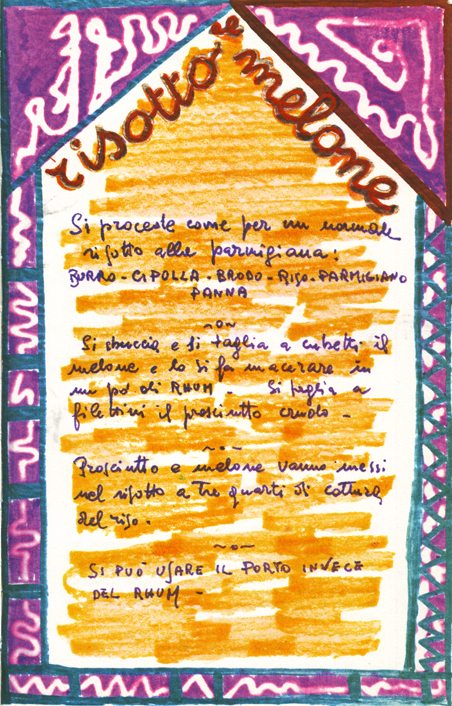 risotto al melone
Si procede come per un normale
risotto alla parmigiana:
BURRO - CIPOLLA - BRODO - RISO - PARMIGIANO
PANNA
Si sbuccia e si taglia a cubetti il
melone e lo si fa macerare in
un po' di RHUM - Si taglia a
filettini il prosciutto crudo -
Prosciutto e melone vanno messi
nel risotto a tre quarti di cottura
del riso.
SI PUÒ USARE IL PORTO INVECE
DEL RHUM -